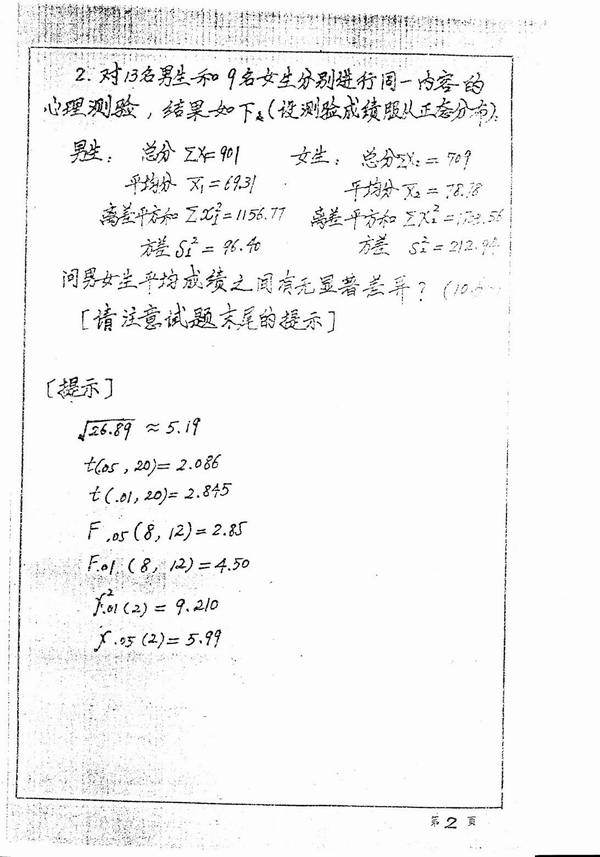 2. 对13名男生和9名女生分别进行同一内容的
心理测验，结果如下：(设测验成绩服从正态分布)。
男生： 总分 ΣX₁=901 女生： 总分ΣX₂=709
平均分 X̄₁=69.31 平均分 X̄₂=78.78
离差平方和 Σx₁²=1156.77 离差平方和 Σx₂²=
方差 S₁²=96.40 方差 S₂²=212.94
问男女生平均成绩之间有无显著差异？
[请注意试题末尾的提示]
[提示]
√26.89 ≈ 5.19
t(.05, 20)= 2.086
t(.01, 20)= 2.845
F.05 (8, 12)= 2.85
F.01 (8, 12)= 4.50
χ².01 (2) = 9.210
χ.05 (2) = 5.99
第 2 页